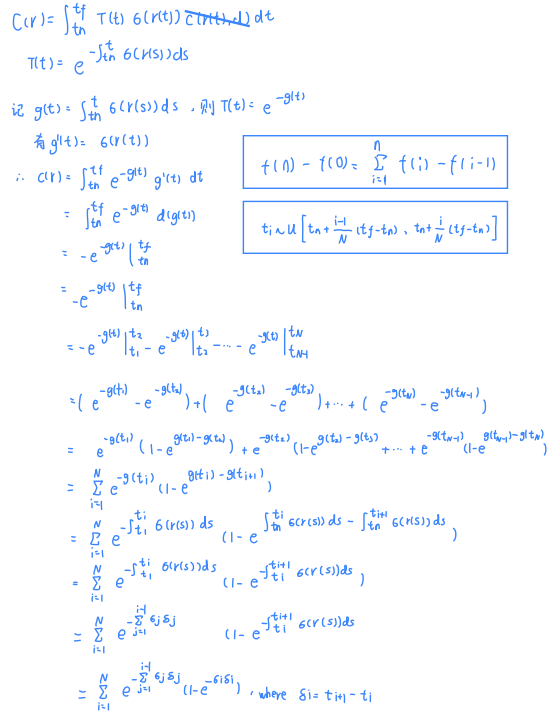 C(r) = ∫_{tn}^{tf} T(t) 6(r(t)) c(r(t), d) dt
T(t) = e^{-∫_{tn}^{t} 6(r(s)) ds}
记 g(t) = ∫_{tn}^{t} 6(r(s)) ds , 则 T(t) = e^{-g(t)}
有 g'(t) = 6(r(t))
f(n) - f(0) = Σ_{i=1}^{n} f(i) - f(i-1)
∴ C(r) = ∫_{tn}^{tf} e^{-g(t)} g'(t) dt
= ∫_{tn}^{tf} e^{-g(t)} d(g(t))
t_i ~ U [tn + \frac{i-1}{N} (tf - tn) , tn + \frac{i}{N} (tf - tn)]
= -e^{-g(t)} |_{tn}^{tf}
= -e^{-g(t)} |_{tn}^{tf}
= -e^{-g(t)} |_{t1}^{t2} - e^{-g(t)} |_{t2}^{t3} - ··· - e^{-g(t)} |_{tN-1}^{tN}
= (e^{-g(t1)} - e^{-g(t2)}) + (e^{-g(t2)} - e^{-g(t3)}) + ··· + (e^{-g(tN)} - e^{-g(tN-1)})
= e^{-g(t1)} (1 - e^{g(t1) - g(t2)}) + e^{-g(t2)} (1 - e^{g(t2) - g(t3)}) + ··· + e^{-g(tN-1)} (1 - e^{g(tN-1) - g(tN)})
= Σ_{i=1}^{N} e^{-g(ti)} (1 - e^{g(ti) - g(ti+1)})
= Σ_{i=1}^{N} e^{-∫_{t1}^{ti} 6(r(s)) ds} (1 - e^{∫_{tn}^{ti} 6(r(s)) ds - ∫_{tn}^{ti+1} 6(r(s)) ds})
= Σ_{i=1}^{N} e^{-∫_{t1}^{ti} 6(r(s)) ds} (1 - e^{-∫_{ti}^{ti+1} 6(r(s)) ds})
= Σ_{i=1}^{N} e^{-Σ_{j=1}^{i-1} 6j δj} (1 - e^{-∫_{ti}^{ti+1} 6(r(s)) ds}
= Σ_{i=1}^{N} e^{-Σ_{j=1}^{i-1} 6j δj} (1 - e^{-6i δi}) , where δi = ti+1 - ti